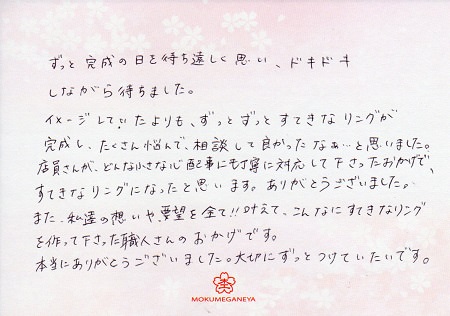 ずっと完成の日を待ち遠しく思い、ドキドキ
しながら待ちました。
イメージしていたよりも、ずっとずっとすてきなリングが
完成し、たくさん悩んで、相談して良かったなぁ…と思いました。
店員さんが、どんな小さな心配事にも丁寧に対応して下さったおかげで、
すてきなリングになったと思います。ありがとうございました。
また、私達の想いや要望を全て!!叶えて、こんなにすてきなリング
を作って下さった職人さんのおかげです。
本当にありがとうございました。大切にずっとつけていたいです。
MOKUMEGANEYA